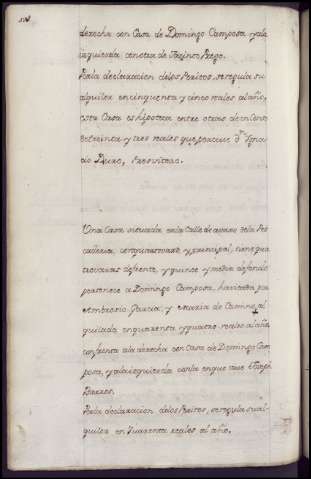 derecha con Casa de Domingo Camposa y ala
izquierda con otra de Jazinto Rego.
Por la declaracion de los Peritos, se regula su
alquiler en cinquenta y cinco reales al año,
esta Casa es hipoteca entre otras de
y tres reales que percive Dn. Ygna-
cio Presvitero.
Una Casa situada en la Calle de la Pes
caderia, con quarto vaxo, y principal, tiene qua
tro varas de frente, y quince y media de fondo
pertenece a Domingo Camposa, havitada por
Ambrosio Garcia, y Maria de Camino, al
quilada en quarenta y quatro reales al año
confrenta a la derecha con Casa de Domingo Cam
posa, y a la izquierda con la en que vive
Por la declaracion de los Peritos, se regula su al
quiler en quarenta reales al año.